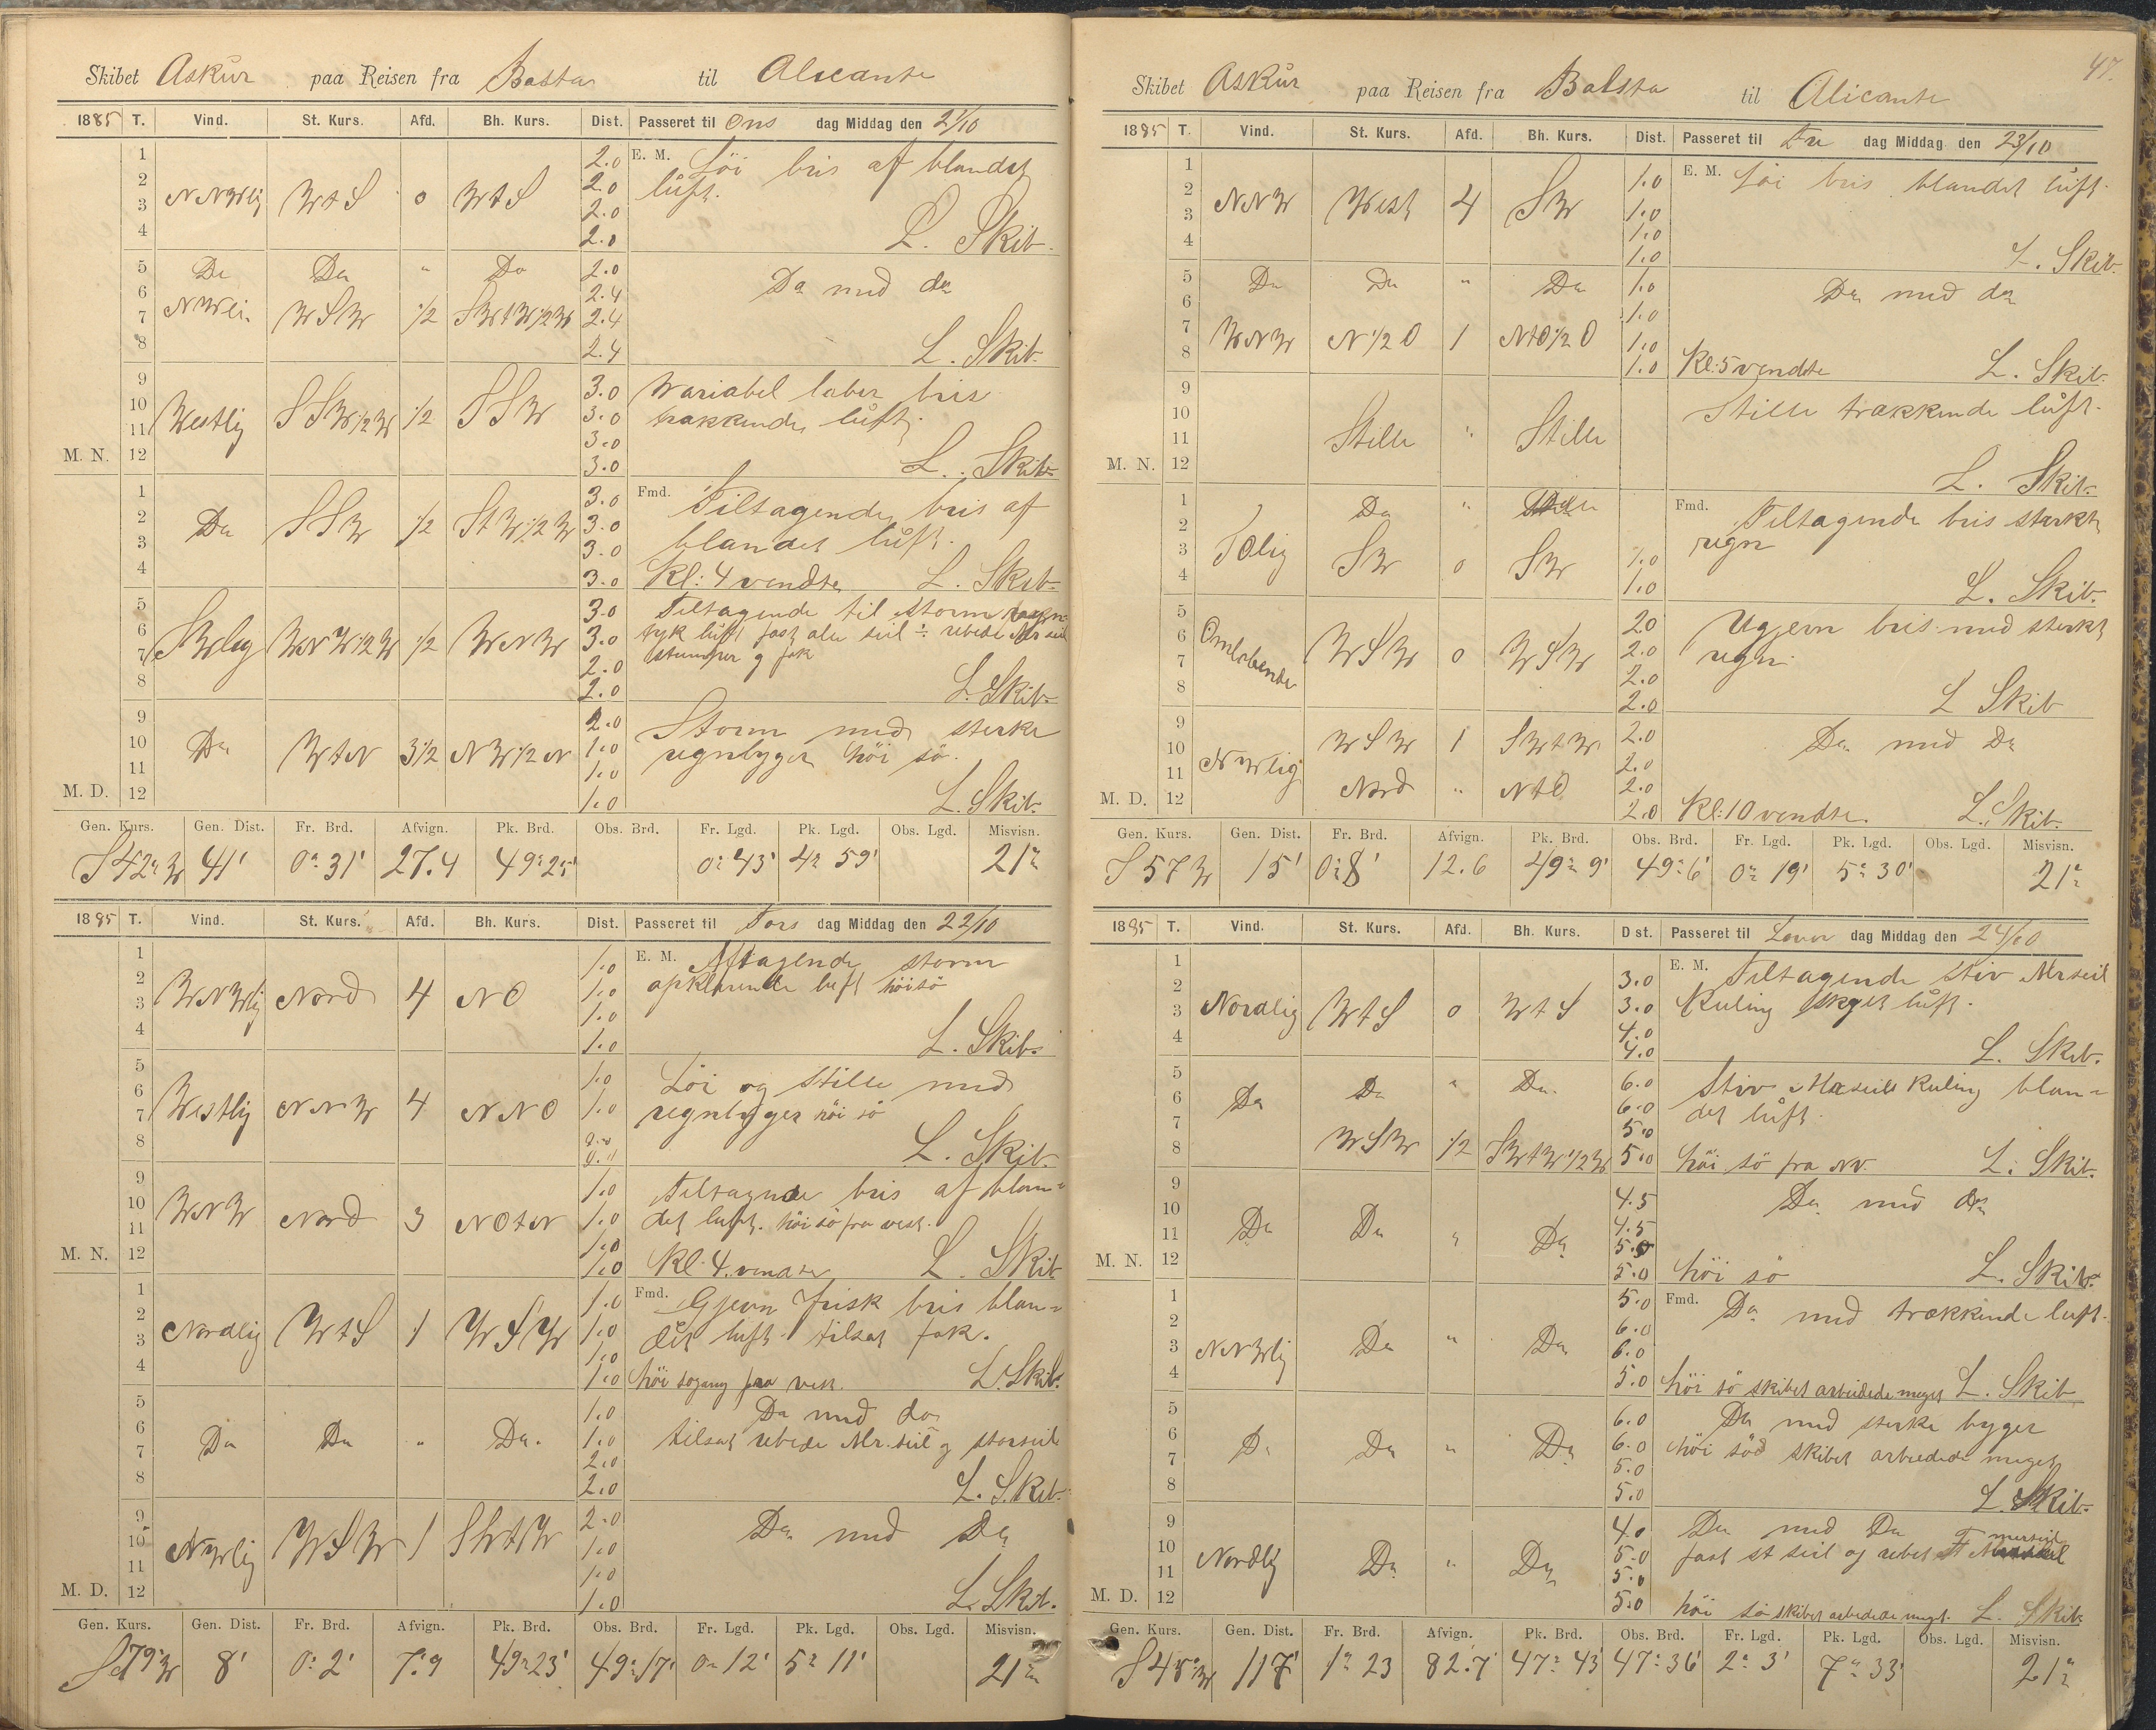 Skibet Askur paa Reisen fra Basta til Alicante
1885 T. Vind. St. Kurs. Afd. Bh. Kurs. Dist. Passeret til Ons dag Middag den 21/10
1 2.0 E. M. Löi bris af blandet
2 NNWlig WtS 0 WtS 2.0 luft.
3 2.0
4 2.0 L. Skib.
5 Do Do " Do 2.0 Do med do
6 NWli. WSW 1/2 SWtW1/2W 2.4
7 2.4
8 2.4 L. Skib.
9 3.0 Variabel laber bris
10 Westlig SSW1/2W 1/2 SSW 3.0 trækkende luft.
11 3.0
M. N. 12 3.0 L. Skib.
1 3.0 Fmd. Tiltagende bris af
2 Do SSW 1/2 StW1/2W 3.0
3 3.0 blandet luft.
4 3.0 Kl: 4 vendte L. Skib.
5 3.0 Tiltagende til storm
6 SWlig WNW1/2W 1/2 WNW 3.0 tyk luft fast alle seil ÷ rebede Mr seil
7 2.0 stumper g fok
8 2.0 L. Skib.
9 2.0 Storm med sterke
10 Do WtN 3 1/2 NW1/2N 1.0 regnbyger höi sö.
11 1.0
M. D. 12 1.0 L. Skib.
Gen. Kurs. Gen. Dist. Fr. Brd. Afvign. Pk. Brd. Obs. Brd. Fr. Lgd. Pk. Lgd. Obs. Lgd. Misvisn.
S42°W 41' 0° 31' 27.4 49° 25' 0° 43' 4° 59' 21°
1885 T. Vind. St. Kurs. Afd. Bh. Kurs. Dist. Passeret til Tors dag Middag den 22/10
1 1.0 E. M. Aftagende storm
2 WNWlig Nord 4 NO 1.0 opklarende luft höi sö
3 1.0
4 1.0 L. Skib.
5 1.0 Löi og stille med
6 Westlig NNW 4 NNO 1.0 regnbyger höi sö
7 0.0
8 0.0 L. Skib.
9 1.0 Tiltagende bris af blan=
10 WNW Nord 3 NOtN 1.0 det luft. höi sö fra vest.
11 1.0
M. N. 12 1.0 Kl. 4. vendte L. Skib
1 1.0 Fmd. Gjevn frisk bris blan=
2 Nordlig WtS 1 WSW 1.0 det luft. tilsat fok.
3 1.0
4 1.0 höi sögang fra vest. L. Skib.
5 1.0 Do med do
6 Do Do " Do. 1.0 tilsat rebede Mr. seil g storseil
7 2.0
8 2.0 L. Skib.
9 2.0 Do med Do
10 NWlig WSW 1 SWtW 1.0
11 1.0
M. D. 12 1.0 L. Skib.
Gen. Kurs. Gen. Dist. Fr. Brd. Afvign. Pk. Brd. Obs. Brd. Fr. Lgd. Pk. Lgd. Obs. Lgd. Misvisn.
S79°W 8' 0° 2' 7.9 49° 23' 49° 17' 0° 12' 5° 11' 21°
47.
Skibet Askur paa Reisen fra Balsta til Alicante
1885 T. Vind. St. Kurs. Afd. Bh. Kurs. Dist. Passeret til Fre dag Middag den 23/10
1 1.0 E. M. Löi bris blandet luft.
2 NNW West 4 SW 1.0
3 1.0
4 1.0 L. Skib.
5 Do Do " Do 1.0 Do med do
6 1.0
7 WNW N1/2O 1 NtO1/2O 1.0
8 1.0 Kl: 5 vendte L. Skib.
9 Stille trækkende luft.
10 Stille " Stille
11
M. N. 12 L. Skib.
1 Do " Fmd. Tiltagende bris sterkt
2 regn
3 SW 0 SW 1.0
4 1.0 L. Skib.
5 2.0 Ugjevn bris med sterkt
6 Omløbende WSW 0 WSW 2.0 regn.
7 2.0
8 2.0 L Skib
9 WSW 1 SWtW 2.0 Do med Do
10 NWlig 2.0
11 Nord " NtO 2.0
M. D. 12 2.0 Kl: 10 vendte. L. Skib.
Gen. Kurs. Gen. Dist. Fr. Brd. Afvign. Pk. Brd. Obs. Brd. Fr. Lgd. Pk. Lgd. Obs. Lgd. Misvisn.
S57W 15' 0° 8' 12.6 49° 9' 49° 6' 0° 19' 5° 30' 21°
1885 T. Vind. St. Kurs. Afd. Bh. Kurs. Dist. Passeret til Löver dag Middag den 24/10
1 3.0 E. M. Tiltagende stiv Mrseil
2 Nordlig WtS 0 WtS 3.0 Kuling skyet luft.
3 4.0
4 4.0 L. Skib.
5 6.0 Stiv Merseils Kuling blan=
6 Do Do " Do. 6.0 det luft.
7 5.0
8 WSW 1/2 SWtW1/2W 5.0 höi sö fra NV. L. Skib.
9 4.5 Do med do
10 Do Do " Do 4.5
11 5.5
M. N. 12 5.0 höi sö L. Skib.
1 5.0 Fmd. Do med trækkende luft.
2 6.0
3 NNWlig Do " Do 6.0
4 5.0 höi sö skibet arbeidede meget L. Skib
5 6.0 Do med sterke byger
6 Do Do " Do 6.0 höi söd skibet arbeidede meget
7 5.0
8 5.0 L. Skib.
9 4.0 Do med Do
10 Nordlig Do " Do 5.0 fast st seil og rebet F merseil
11 5.0
M. D. 12 5.0 höi sö skibet arbedede meget. L. Skib.
Gen. Kurs. Gen. Dist. Fr. Brd. Afvign. Pk. Brd. Obs. Brd. Fr. Lgd. Pk. Lgd. Obs. Lgd. Misvisn.
S45°W 117' 1° 23 82.7 47° 43' 47° 36' 2° 3' 7° 33' 21°